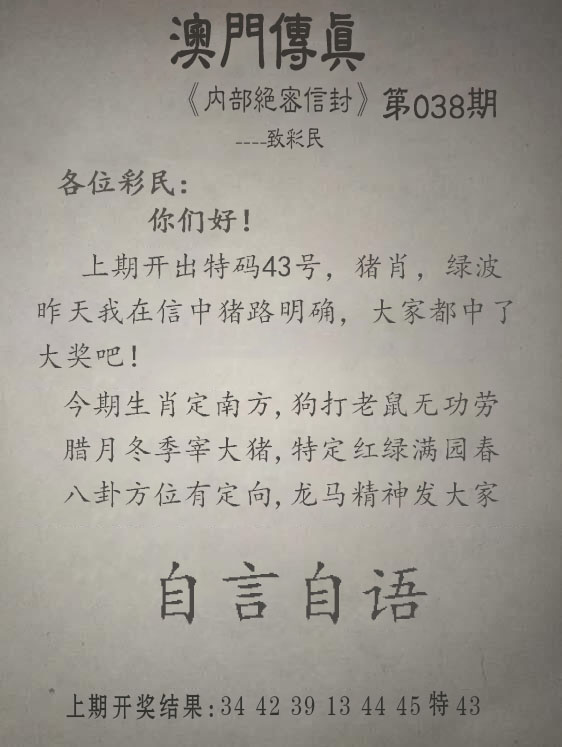 澳門傳眞
《内部絕密信封》第038期
----致彩民
各位彩民：
你们好！
上期开出特码43号，猪肖，绿波
昨天我在信中猪路明确，大家都中了
大奖吧！
今期生肖定南方,狗打老鼠无功劳
腊月冬季宰大猪,特定红绿满园春
八卦方位有定向,龙马精神发大家
自言自语
上期开奖结果:34 42 39 13 44 45 特 43